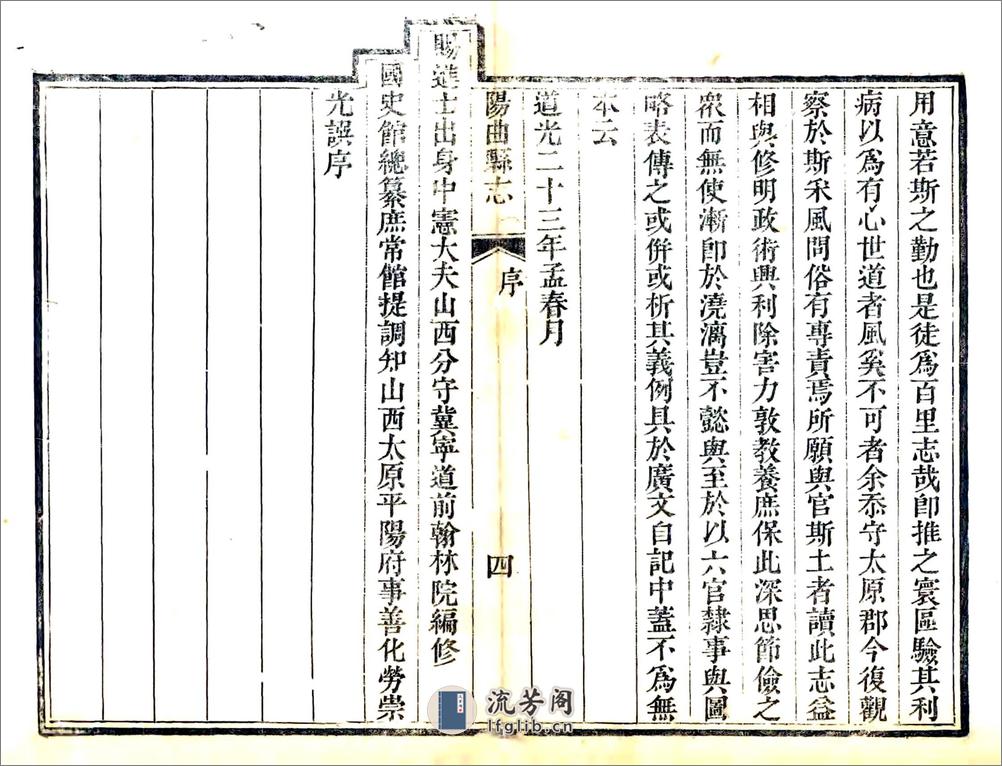 用意若斯之勤也是徒爲百里志哉卽推之寰區驗其利
病以爲有心世道者風奚不可者余忝守太原郡今復觀
察於斯釆風問俗有專責焉所願與官斯土者讀此志益
相與修明政術興利除害力敦教養庶保此深思節儉之
衆而無使漸卽於澆漓豈不懿與至於以六官隸事與圖
略表傳之或併或析其義例具於廣文自記中蓋不爲無
本云
道光二十三年孟春月
陽曲縣志
序
四
賜進士出身中憲大夫山西分守冀寧道前翰林院編修
國史館總纂庶常館提調知山西太原平陽府事善化勞崇
光譔序
流芳阁
lfglib.cn